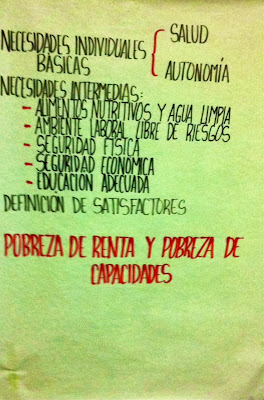 NECESIDADES INDIVIDUALES { SALUD
BÁSICAS AUTONOMÍA
NECESIDADES INTERMEDIAS:
- ALIMENTOS NUTRITIVOS Y AGUA LIMPIA
- AMBIENTE LABORAL LIBRE DE RIESGOS
- SEGURIDAD FÍSICA
- SEGURIDAD ECONÓMICA
- EDUCACIÓN ADECUADA
DEFINICIÓN DE SATISFACTORES
POBREZA DE RENTA Y POBREZA DE
CAPACIDADES